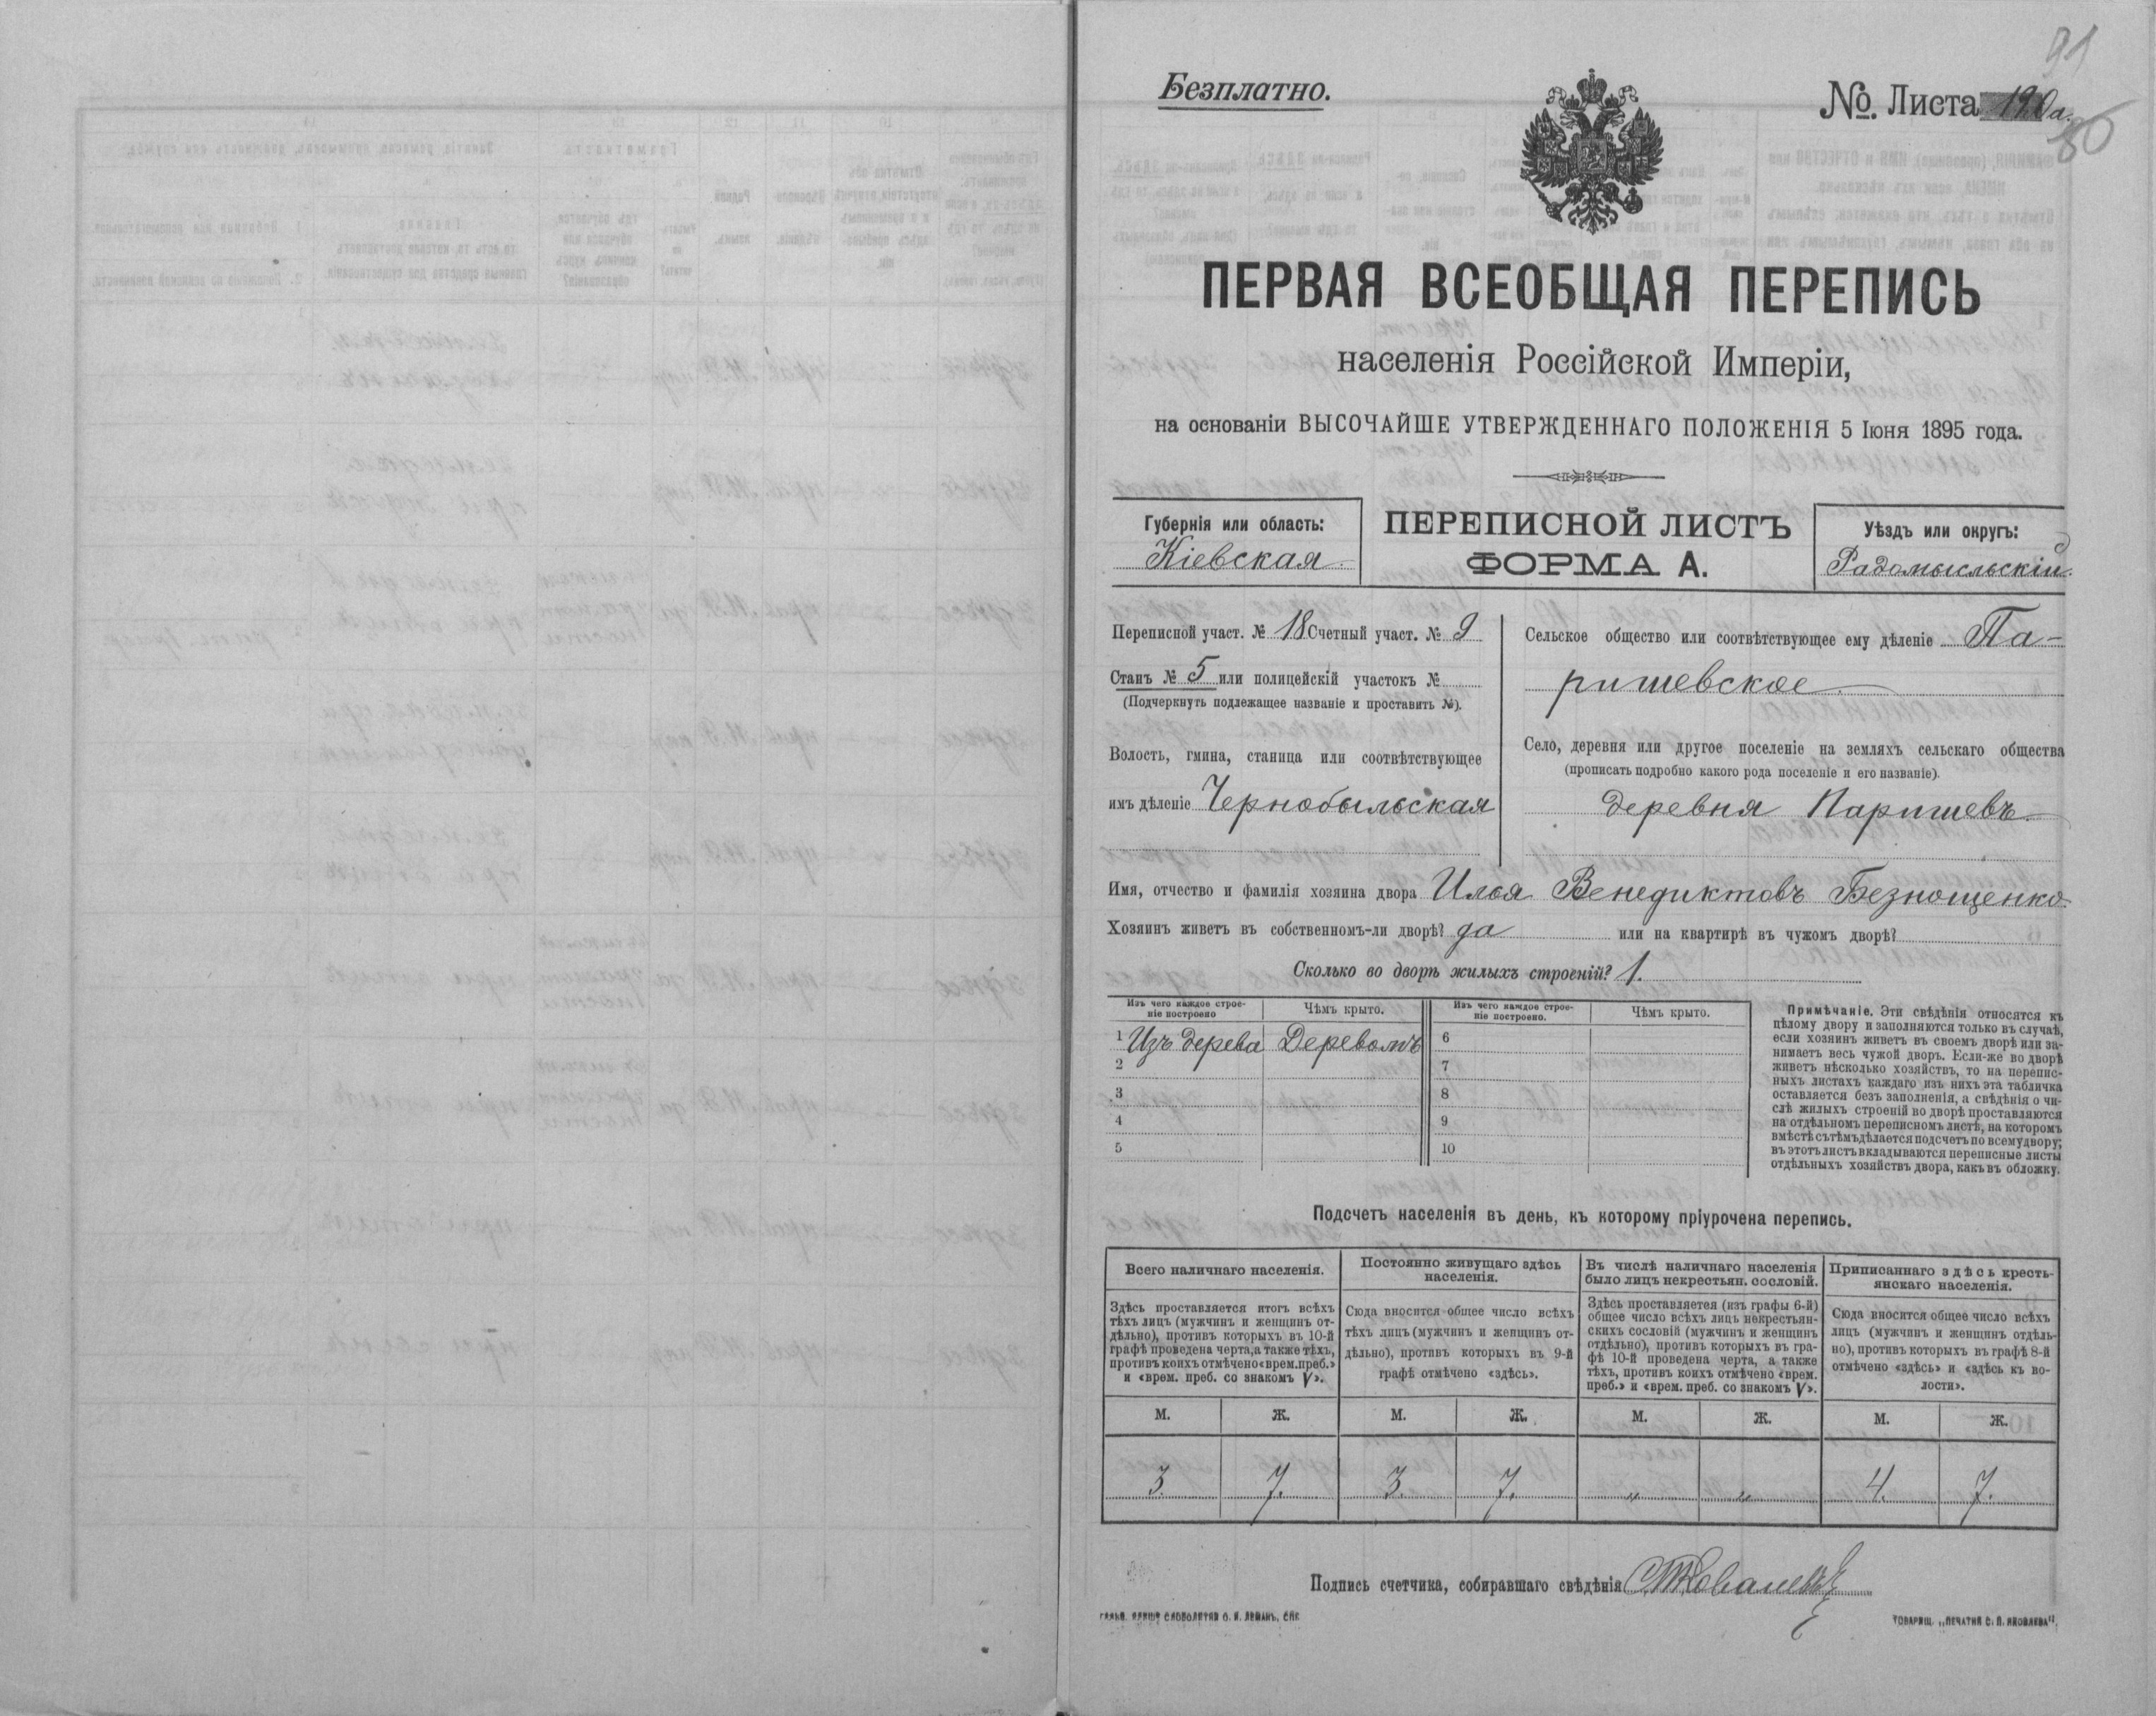 91
Безплатно.
№ Листа 120а.
86
ПЕРВАЯ ВСЕОБЩАЯ ПЕРЕПИСЬ
населенія Россійской Имперіи,
на основаніи ВЫСОЧАЙШЕ УТВЕРЖДЕННАГО ПОЛОЖЕНІЯ 5 Іюня 1895 года.
Губернія или область:
Кіевская
ПЕРЕПИСНОЙ ЛИСТЪ
ФОРМА А.
Уѣздъ или округъ:
Радомысльскій.
Переписной участ. № 18 Счетный участ. № 9
Станъ № 5 или полицейскій участокъ №
(Подчеркнуть подлежащее названіе и проставить №).
Волость, гмина, станица или соотвѣтствующее
имъ дѣленіе Чернобыльская
Сельское общество или соотвѣтствующее ему дѣленіе Па-
ришевское
Село, деревня или другое поселеніе на земляхъ сельскаго общества
(прописать подробно какого рода поселеніе и его названіе).
деревня Паришевъ
Имя, отчество и фамилія хозяина двора Илья Венедиктовъ Безнощенко
Хозяинъ живетъ въ собственномъ-ли дворѣ? да или на квартирѣ въ чужомъ дворѣ?
Сколько во дворѣ жилыхъ строеній? 1.
Изъ чего каждое строе-
ніе построено
Чѣмъ крыто.
Изъ чего каждое строе-
ніе построено.
Чѣмъ крыто.
1 Изъ дерева Деревомъ 6
2 7
3 8
4 9
5 10
Примѣчаніе. Эти свѣдѣнія относятся къ
цѣлому двору и заполняются только въ случаѣ,
если хозяинъ живетъ въ своемъ дворѣ или за-
нимаетъ весь чужой дворъ. Если-же во дворѣ
живетъ нѣсколько хозяйствъ, то на перепис-
ныхъ листахъ каждаго изъ нихъ эта табличка
оставляется безъ заполненія, а свѣдѣнія о чи-
слѣ жилыхъ строеній во дворѣ проставляются
на отдѣльномъ переписномъ листѣ, на которомъ
вмѣстѣ съ тѣмъ дѣлается подсчетъ по всему двору;
въ этотъ листъ вкладываются переписные листы
отдѣльныхъ хозяйствъ двора, какъ въ обложку.
Подсчетъ населенія въ день, къ которому пріурочена перепись.
Всего наличнаго населенія.
Здѣсь проставляется итогъ всѣхъ
тѣхъ лицъ (мужчинъ и женщинъ от-
дѣльно), противъ которыхъ въ 10-й
графѣ проведена черта, а также тѣхъ,
противъ коихъ отмѣчено «врем. преб.»
и «врем. преб. со знакомъ V».
Постоянно живущаго здѣсь
населенія.
Сюда вносится общее число всѣхъ
тѣхъ лицъ (мужчинъ и женщинъ от-
дѣльно), противъ которыхъ въ 9-й
графѣ отмѣчено «здѣсь».
Въ числѣ наличнаго населенія
было лицъ некрестьян. сословій.
Здѣсь проставляется (изъ графы 6-й)
общее число всѣхъ лицъ некрестьян-
скихъ сословій (мужчинъ и женщинъ
отдѣльно), противъ которыхъ въ гра-
фѣ 10-й проведена черта, а также
тѣхъ, противъ коихъ отмѣчено «врем.
преб.» и «врем. преб. со знакомъ V».
Приписаннаго здѣсь кресть-
янскаго населенія.
Сюда вносится общее число всѣхъ
лицъ (мужчинъ и женщинъ отдѣль-
но), противъ которыхъ въ графѣ 8-й
отмѣчено «здѣсь» и «здѣсь къ во-
лости».
М. Ж. М. Ж. М. Ж. М. Ж.
3. 7. 3. 7. „ „ 4. 7.
Подпись счетчика, собиравшаго свѣдѣнія
ТОВАРИЩ. „ПЕЧАТНЯ С. П. ЯКОВЛЕВА".